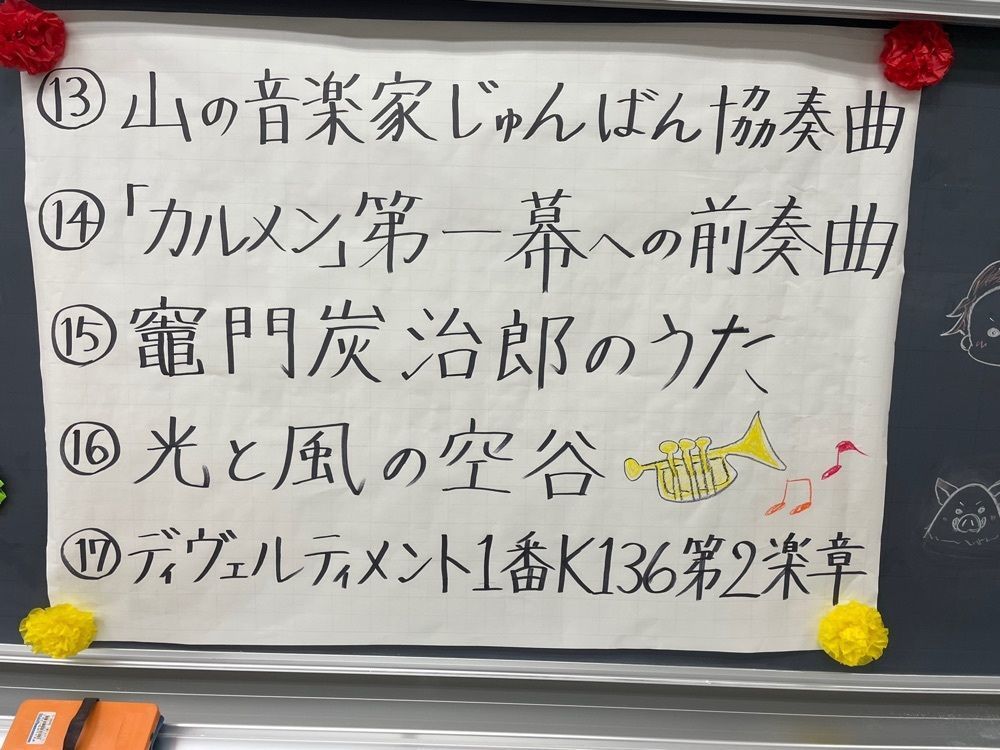 ⑬山の音楽家じゅんばん協奏曲
⑭「カルメン」第一幕への前奏曲
⑮竈門炭治郎のうた
⑯光と風の空谷
⑰ディヴェルティメント1番K136第2楽章